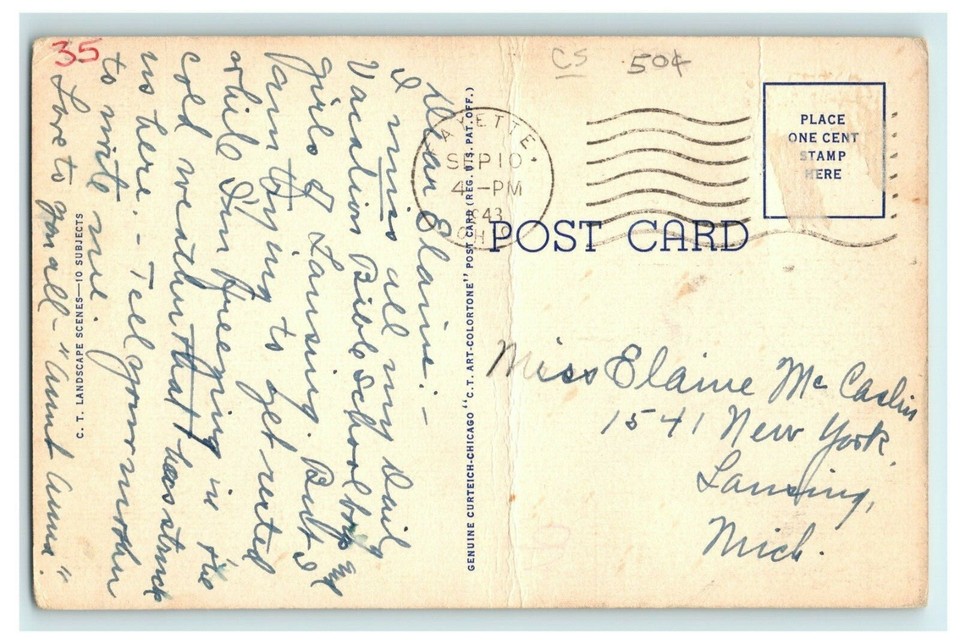 35
CS 50¢
PLACE
ONE CENT
STAMP
HERE
AYETTE
SEP 10
4-PM
1943
OHIO
POST CARD
Miss Elaine McCaslin
1541 New York,
Lansing,
Mich.
GENUINE CURTEICH-CHICAGO "C.T. ART-COLORTONE" POST CARD (REG. U.S. PAT. OFF.)
Dear Elaine:-
I miss all my Daily
Vacation Bible School boys and
girls of Lansing. But I
am trying to get rested
while I'm freezing in the
cold weather that has struck
us here. - Tell your mother
to write me.
Love to you all - "Aunt Anna."
C. T. LANDSCAPE SCENES—10 SUBJECTS